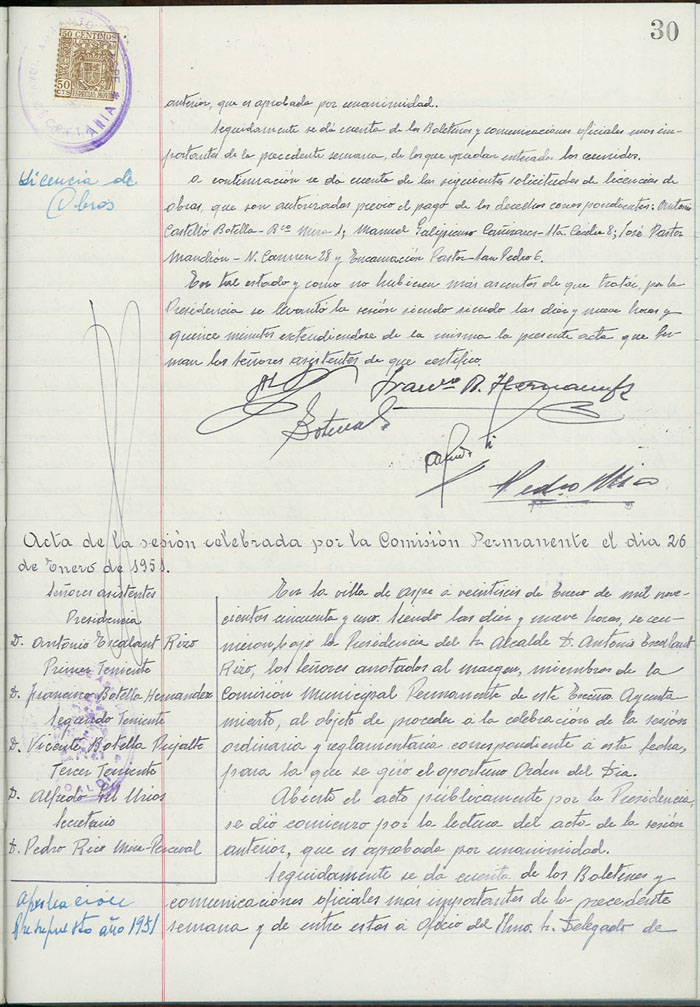 30
50 CENTIMOS
50
CTS
ESPECIAL MOVIL
anterior, que es aprobada por unanimidad.
Seguidamente se dá cuenta de los Boletines y comunicaciones oficiales mas im-
portantes de la precedente semana, de los que quedan enterados los reunidos.
Licencia de
Obras
A continuación se da cuenta de las siguientes solicitudes de licencias de
obras, que son autorizadas previo el pago de los derechos correspondientes: Antonio
Castelló Botella - Bco Mira 1; Manuel Cañizares - Sta. 8; José Pastor
- N. Carmen 28 y Encarnación Pastor - San Pedro 6.
En tal estado y como no hubieren más asuntos de que tratar, por la
Presidencia se levantó la sesión siendo siendo las diez y nueve horas y
quince minutos extendiendose de la misma la presente acta que fir-
man los señores asistentes de que certifico.
Botella
Pedro
Acta de la sesión celebrada por la Comisión Permanente el dia 26
de Enero de 1951.
Señores asistentes
Presidencia
D. Antonio Escalant Rizo
Primer Teniente
D. Francisco Botella Hernandez
Segundo Teniente
D. Vicente Botella Pujalte
Tercer Teniente
D. Alfredo Gil Urios
Secretario
D. Pedro Rico Mira-Perceval
En la villa de Aspe á veintiseis de Enero de mil nove-
cientos cincuenta y uno. Siendo las diez y nueve horas, se reu-
nieron, bajo la Presidencia del Sr. Alcalde D. Antonio Escalant
Rizo, los señores anotados al margen, miembros de la
Comisión Municipal Permanente de este Excmo Ayunta-
miento, al objeto de proceder á la celebración de la sesión
ordinaria y reglamentaria correspondiente á esta fecha,
para la que se giró el oportuno Orden del Dia.
Abierto el acto públicamente por la Presidencia,
se dió comienzo por la lectura del acta de la sesión
anterior, que es aprobada por unanimidad.
Aprobación
Presupuesto año 1951
Seguidamente se da cuenta de los Boletines y
comunicaciones oficiales más importantes de la precedente
semana y de entre estos á oficio del Iltmo. Sr. Delegado de